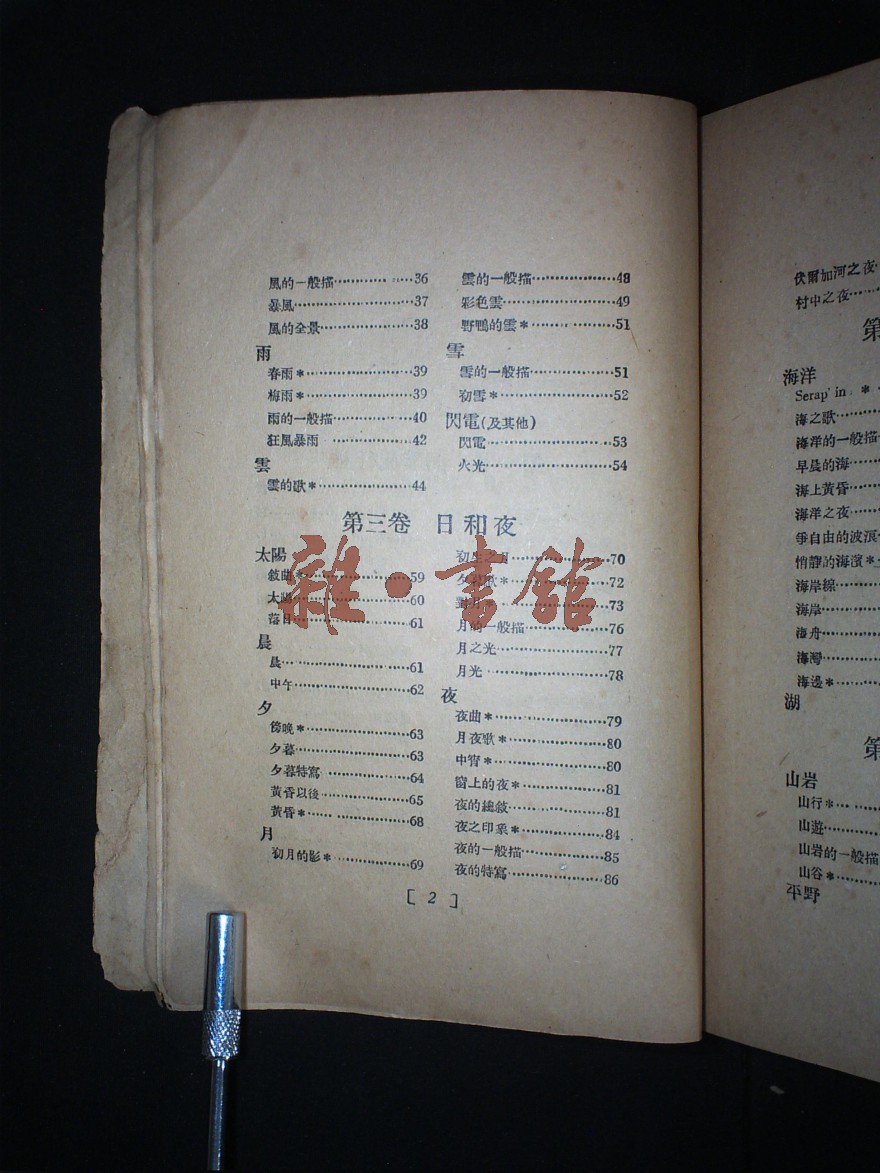 風的一般描………… …36
暴風…………………37
風的全景……………38
雨
春雨*………………39
梅雨*………………39
雨的一般描…………40
狂風暴雨 ……………42
雲
雲的歌*……………44
雲的一般描……………48
彩色雲…………………49
野鴨的雲*……………51
雪
雪的一般描……………51
初雪*…………………52
閃電(及其他)
閃電……………………53
火光……………………54
第三卷 日和夜
太陽
敍曲*………………59
太陽…………………60
落日…………………61
晨
晨……………………61
中午…………………62
夕
傍晚*………………63
夕暮…………………63
夕暮特寫 ……………64
黃昏以後……………65
黃昏*………………68
月
初月的影*…………69
初生之月………………70
夕 歌*………………72
對月*…………………73
月的一般描……………76
月之光…………………77
月光……………………78
夜
夜曲*…………………79
月夜歌*………………80
中宵*…………………80
窗上的夜*……………81
夜的總敍………………81
夜之印象*……………84
夜的一般描……………85
夜的特寫………………86
[ 2 ]
伏爾加河之夜
村中之夜……
第
海洋
Serap' in *
海之歌………
海洋的一般描
早晨的海……
海上黃昏……
海洋之夜……
自由的波浪…
悄靜的海濱*
海岸線………
海岸…………
海舟…………
海灣…………
海邊*………
湖
第
山岩
山行*……
山遊…………
山岩的一般描
山谷*………
平野
雜·書館